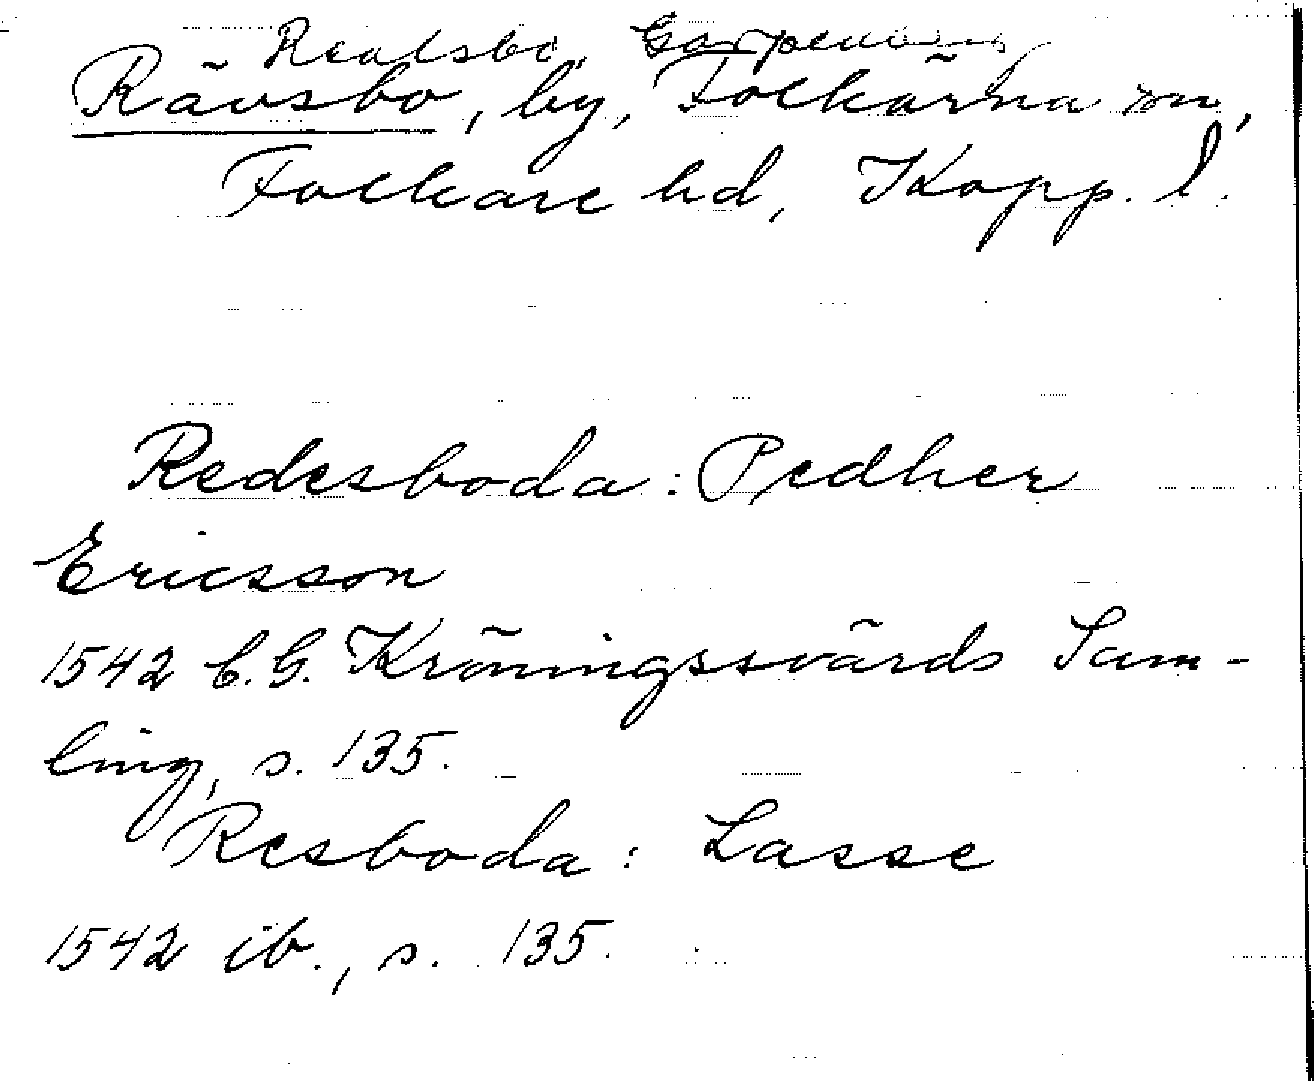 Realsbo, Garpenberg
Rävsbo, by, Folkärna sn,
Folkare hd, Kopp. l.
Redesboda: Pedher
Ericsson
1542 C.G. Kröningssvärds Sam-
ling, s. 135.
Resboda: Lasse
1542 ib., s. 135.